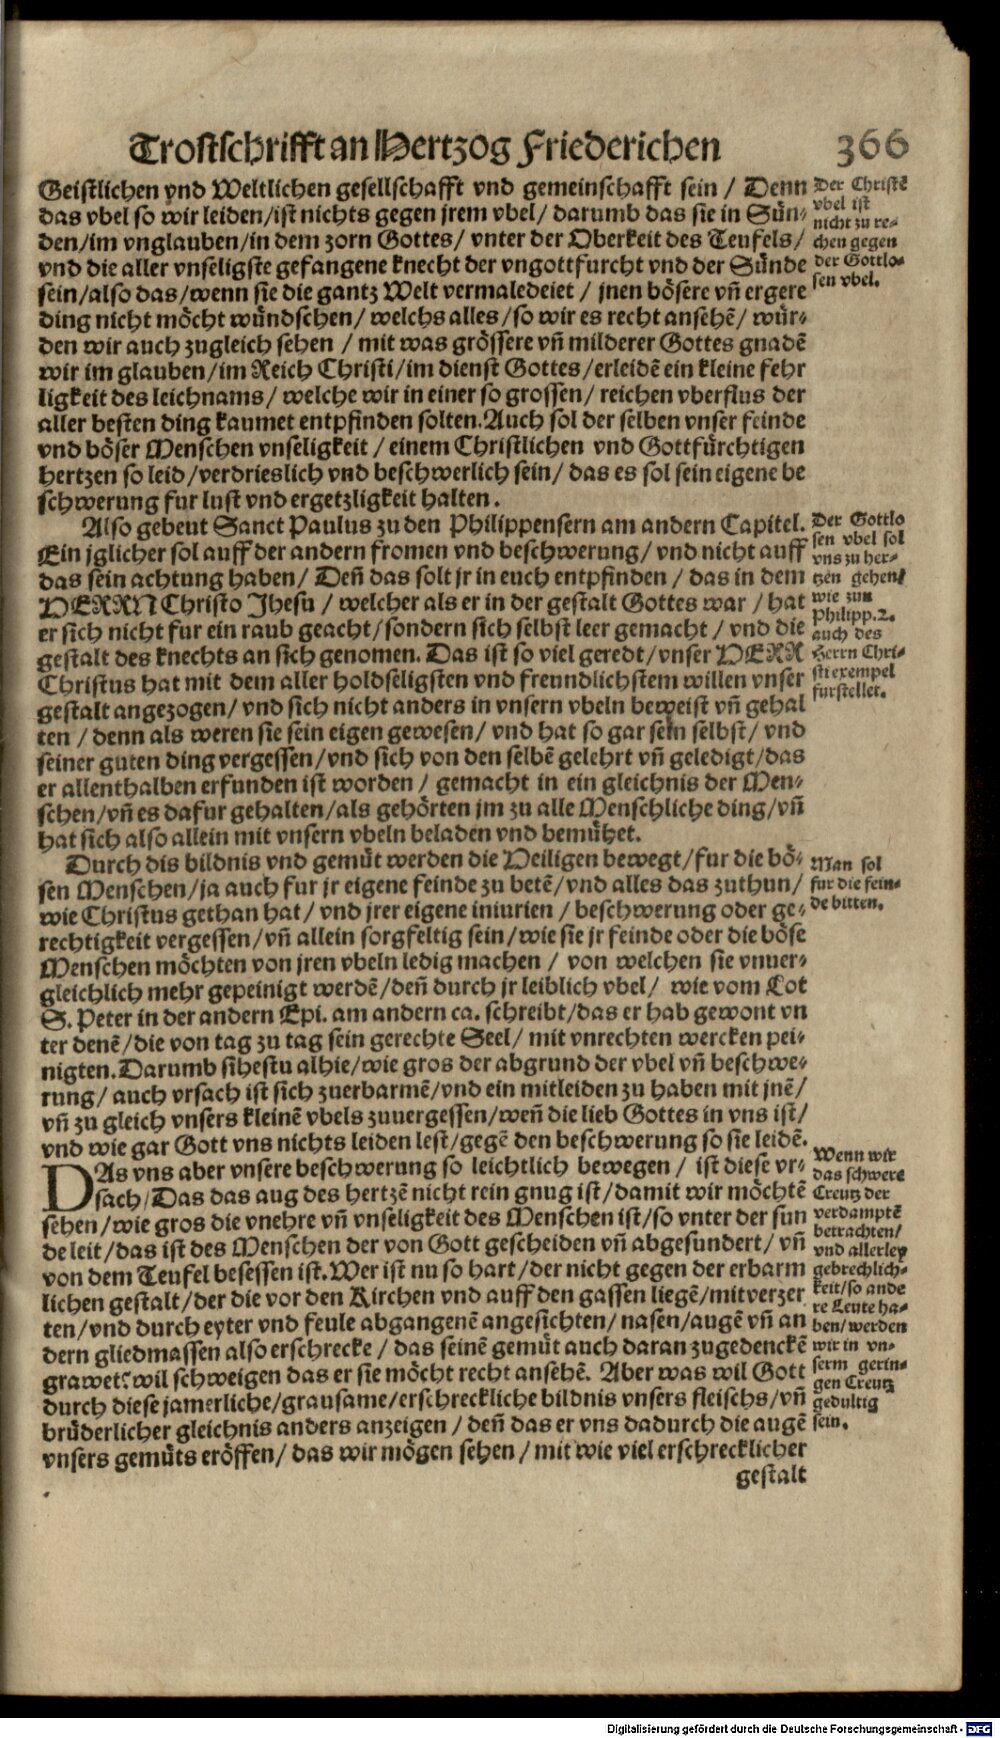 Trostschrifft an Hertzog Friederichen 366
Geistlichen vnd Weltlichen gesellschafft vnd gemeinschafft sein / Denn
das vbel so wir leiden/ist nichts gegen jrem vbel/ darumb das sie in Sün-
den/im vnglauben/in dem zorn Gottes/ vnter der Oberkeit des Teufels/
vnd die aller vnseligste gefangene knecht der vngottfurcht vnd der Sünde
sein/also das/wenn sie die gantz Welt vermaledeiet / jnen bösere vñ ergere
ding nicht möcht wündschen/ welchs alles/so wir es recht ansehẽ/ wür-
den wir auch zugleich sehen / mit was grössere vñ milderer Gottes gnadẽ
wir im glauben/im Reich Christi/im dienst Gottes/erleidẽ ein kleine fehr
ligkeit des leichnams/ welche wir in einer so grossen/ reichen vberflus der
aller besten ding kaumet entpfinden solten. Auch sol der selben vnser feinde
vnd böser Menschen vnseligkeit / einem Christlichen vnd Gottfürchtigen
hertzen so leid/verdrieslich vnd beschwerlich sein/ das es sol sein eigene be
schwerung fur lust vnd ergetzligkeit halten.
Der Christẽ
vbel ist
nicht zu re-
chen gegen
der Gottlo-
sen vbel.
Also gebeut Sanct Paulus zu den Philippensern am andern Capitel.
Ein jglicher sol auff der andern fromen vnd beschwerung/ vnd nicht auff
das sein achtung haben/ Deñ das solt jr in euch entpfinden / das in dem
HERRN Christo Jhesu / welcher als er in der gestalt Gottes war / hat
er sich nicht fur ein raub geacht/sondern sich selbst leer gemacht / vnd die
gestalt des knechts an sich genomen. Das ist so viel geredt/vnser HERR
Christus hat mit dem aller holdseligsten vnd freundlichstem willen vnser
gestalt angezogen/ vnd sich nicht anders in vnsern vbeln beweist vñ gehal
ten / denn als weren sie sein eigen gewesen/ vnd hat so gar sein selbst/ vnd
seiner guten ding vergessen/vnd sich von den selbẽ gelehrt vñ geledigt/das
er allenthalben erfunden ist worden / gemacht in ein gleichnis der Men-
schen/vñ es dafur gehalten/als gehörten jm zu alle Menschliche ding/vñ
hat sich also allein mit vnsern vbeln beladen vnd bemühet.
Der Gottlo
sen vbel sol
vns zu her-
tzen gehen/
wie zun
Philipp.2.
auch des
Herrn Chri-
sti exempel
furstellet.
Durch dis bildnis vnd gemüt werden die Heiligen bewegt/fur die bö-
sen Menschen/ja auch fur jr eigene feinde zu betẽ/vnd alles das zuthun/
wie Christus gethan hat/ vnd jrer eigene iniurien / beschwerung oder ge-
rechtigkeit vergessen/vñ allein sorgfeltig sein/wie sie jr feinde oder die böse
Menschen möchten von jren vbeln ledig machen / von welchen sie vnuer-
gleichlich mehr gepeinigt werdẽ/deñ durch jr leiblich vbel/ wie vom Lot
S. Peter in der andern Epi. am andern ca. schreibt/das er hab gewont vn
ter denẽ/die von tag zu tag sein gerechte Seel/ mit vnrechten wercken pei-
nigten. Darumb sihestu alhie/wie gros der abgrund der vbel vñ beschwe-
rung/ auch vrsach ist sich zuerbarmẽ/vnd ein mitleiden zu haben mit jnẽ/
vñ zu gleich vnsers kleinẽ vbels zuuergessen/weñ die lieb Gottes in vns ist/
vnd wie gar Gott vns nichts leiden lest/gegẽ den beschwerung so sie leidẽ.
Man sol
fur die fein-
de bitten.
DAs vns aber vnsere beschwerung so leichtlich bewegen / ist diese vr-
sach/Das das aug des hertzẽ nicht rein gnug ist/damit wir möchtẽ
sehen/wie gros die vnehre vñ vnseligkeit des Menschen ist/so vnter der sun
de leit/das ist des Menschen der von Gott gescheiden vñ abgesundert/ vñ
von dem Teufel besessen ist. Wer ist nu so hart/der nicht gegen der erbarm
lichen gestalt/der die vor den Kirchen vnd auff den gassen liegẽ/mit verzer
ten/vnd durch eyter vnd feule abgangenẽ angesichten/ nasen/augẽ vñ an
dern gliedmassen also erschrecke / das seinẽ gemüt auch daran zugedenckẽ
grawet? wil schweigen das er sie möcht recht ansehẽ. Aber was wil Gott
durch diese jamerliche/grausame/erschreckliche bildnis vnsers fleischs/vñ
brüderlicher gleichnis anders anzeigen / deñ das er vns dadurch die augẽ
vnsers gemüts eröffen/ das wir mögen sehen/ mit wie viel erschrecklicher
gestalt
Wenn wir
das schwere
Creutz der
verdamptẽ
betrachten/
vnd allerley
gebrechlich-
keit/so ande
re Leute ha-
ben/werden
wir in vn-
serm gerin-
gen Creutz
gedultig
sein.
Digitalisierung gefördert durch die Deutsche Forschungsgemeinschaft - DFG